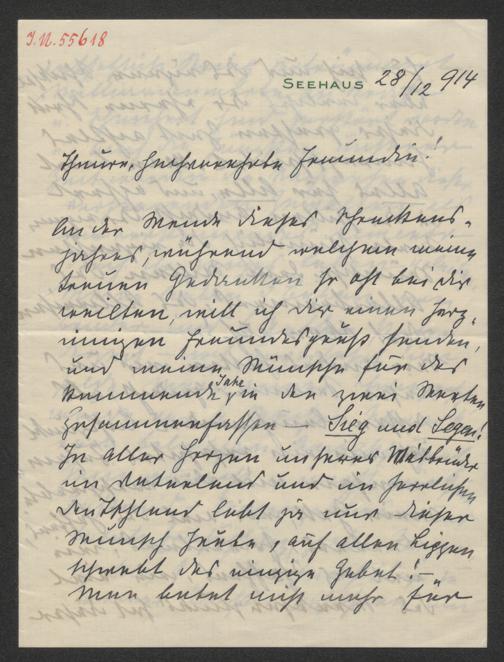 J.N. 55618
SEEHAUS 28/12 914
Theure, hochverehrte Freundin!
An der Wende dieses Schreckens-
jahres, während welchem meine
treuen Gedanken so oft bei dir
weilten, will ich dir einen herz-
innigen Freundesgruß senden,
und meine Wünsche für das
kommende Jahr, in den zwei Worten
zusammenfassen – Sieg und Segen!
In aller Herzen unseres Mitbrüder
im Vaterland und im herrlichen
Deutschland lebt ja nur dieser
Wunsch heute, auf allen Lippen
schwebt das einzige Gebet! –
Man betet nicht mehr für